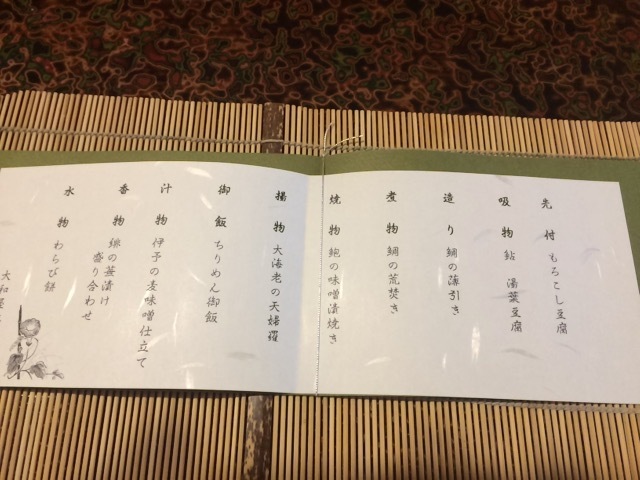 先付 もろこし豆腐
吸物 鮎 湯葉豆腐
造り 鯛の薄引き
煮物 鯛の荒焚き
焼物 鮑の味噌漬焼き
揚物 大海老の天婦羅
御飯 ちりめん御飯
汁物 伊予の麦味噌仕立て
香物 緋の蕪漬け
盛り合わせ
水物 わらび餅
大和屋